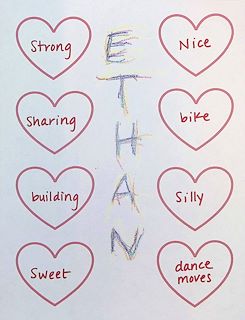 Strong
Sharing
building
Sweet
ETHAN
Nice
bike
Silly
dance
moves